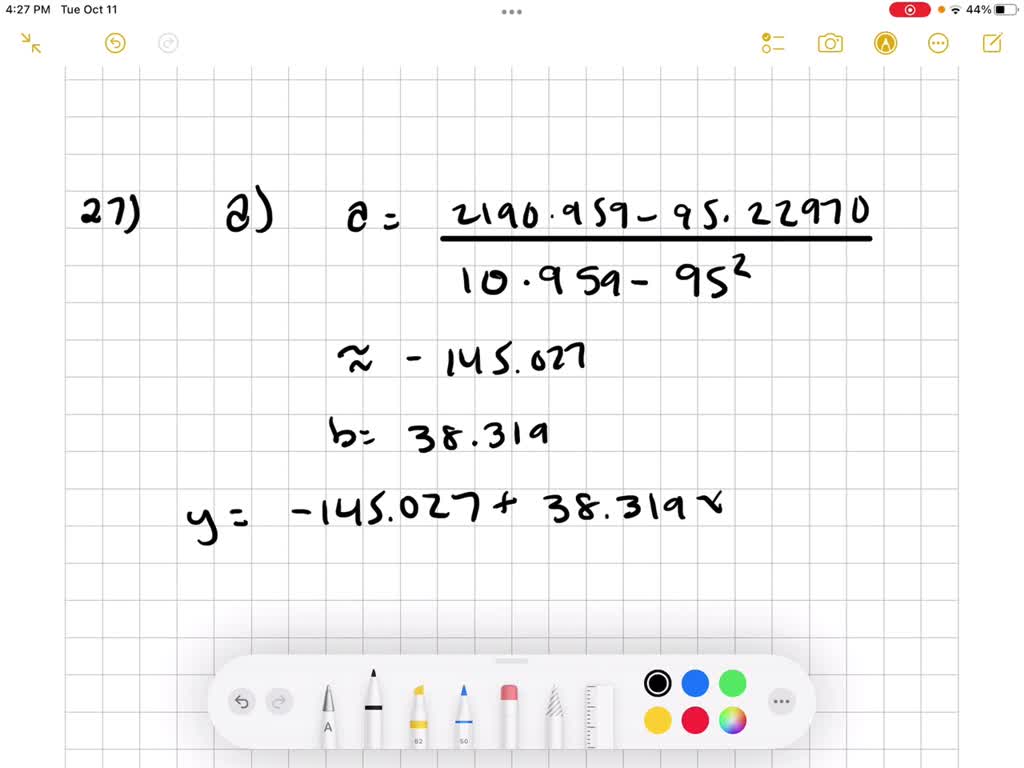 4:27 PM Tue Oct 11
44%
27) a) a = 2190·959 - 95·22970
10·959 - 95²
≈ -145.027
b = 38.319
y = -145.027 + 38.319x
A
82
50